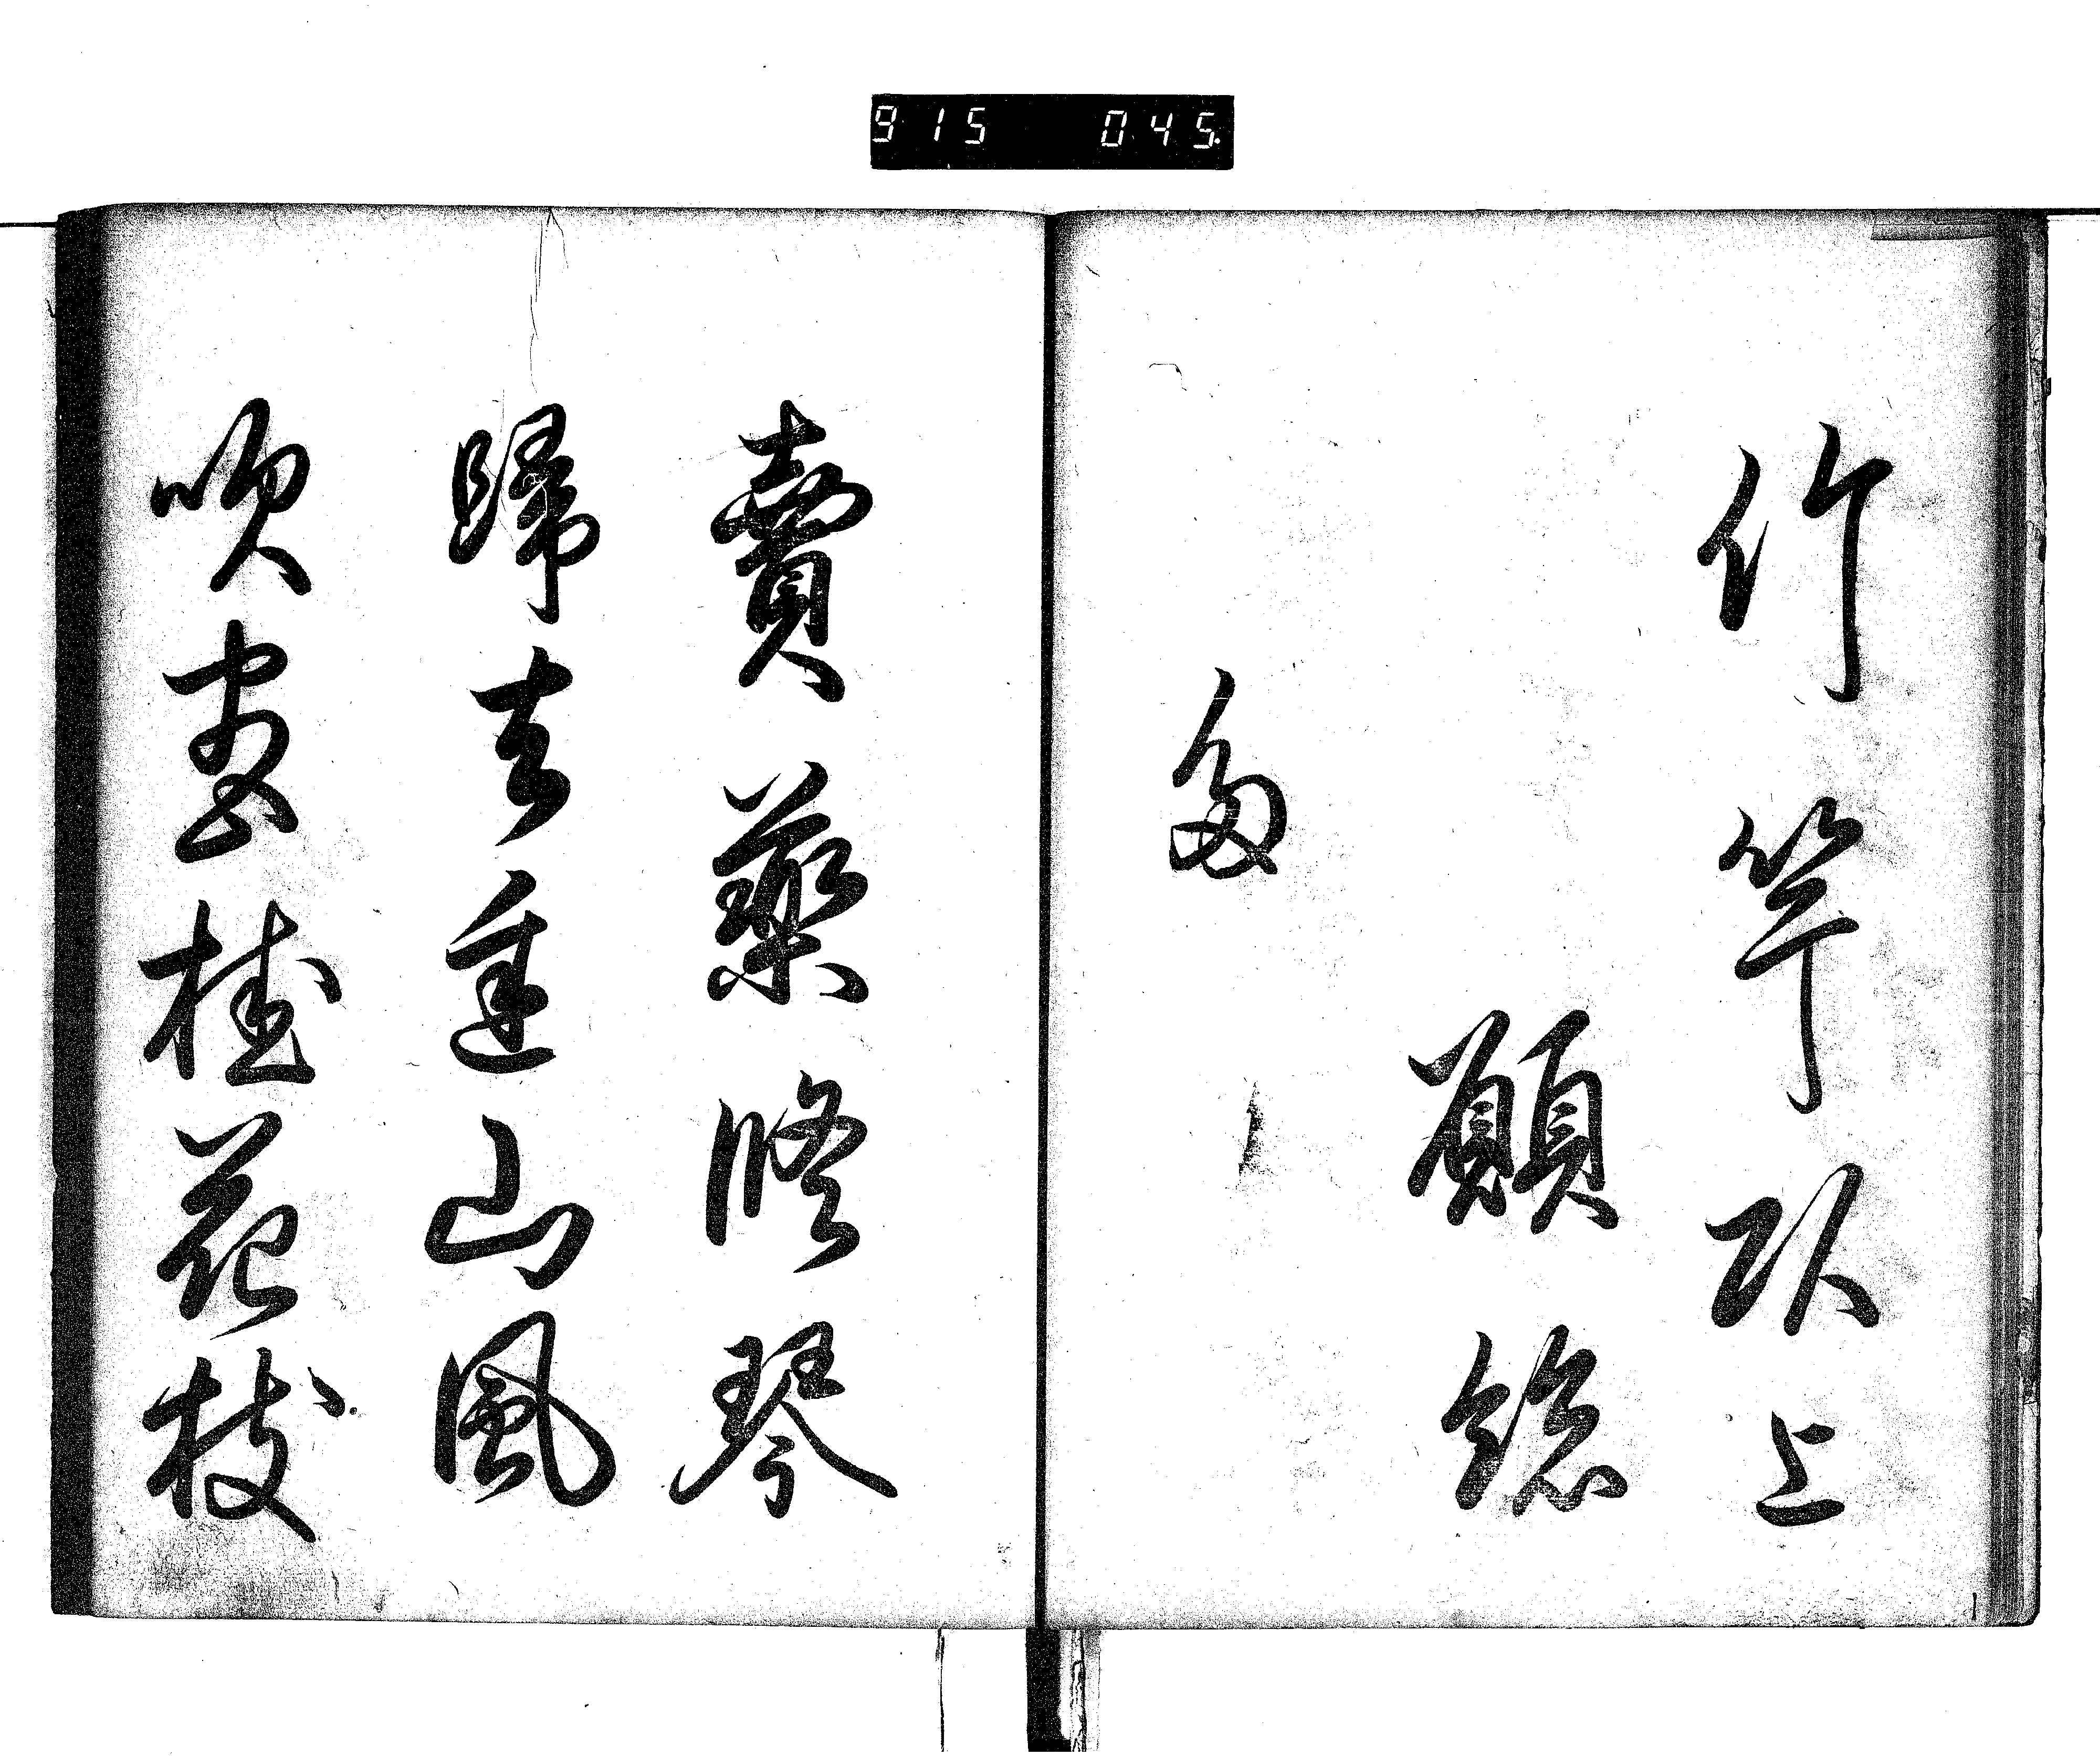 915 045
竹竿頭上
願
多
賣藥修琴
歸去遲山風
吹盡桂花枝